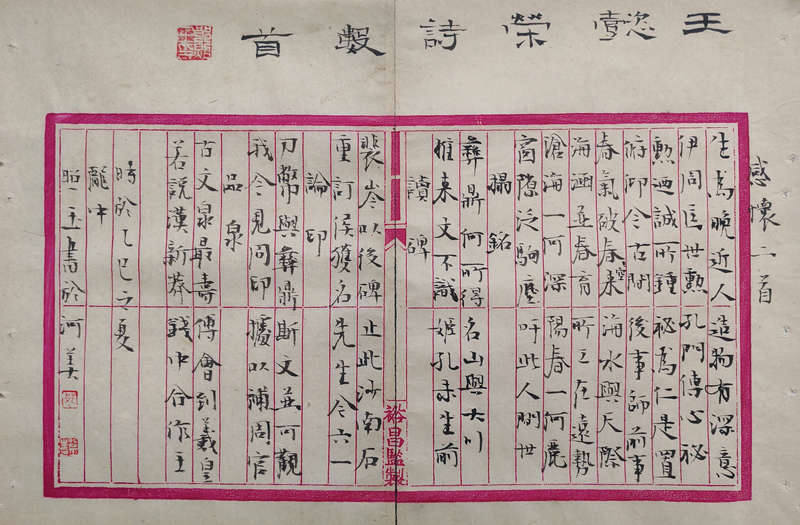 王懿榮詩數首
感懷二首
生也晚近人造物有深意
伊周匡世勲孔門傳心秘
勲迺誠所鍾秘為仁是置
俯仰今古間後事師前事
春氣破春來海水與天際
海涵並春育所立在遠勢
滄海一何深陽春一何麗
窗隙泛駒塵吁此人間世
搨銘
彝鼎何所得名山與大川
惟来文不識姬孔未生前
讀碑
裴岑以後碑止此沙南石
重訂侯獲名先生今六一
論印
刀幣與彝鼎斯文並可觀
我今見周印據以補周官
品泉
古文泉最壽傅會到羲皇
若說漢新莽錢中合作王
時於乙巳之夏
龍中
照玉書於河姜
裕昌監製